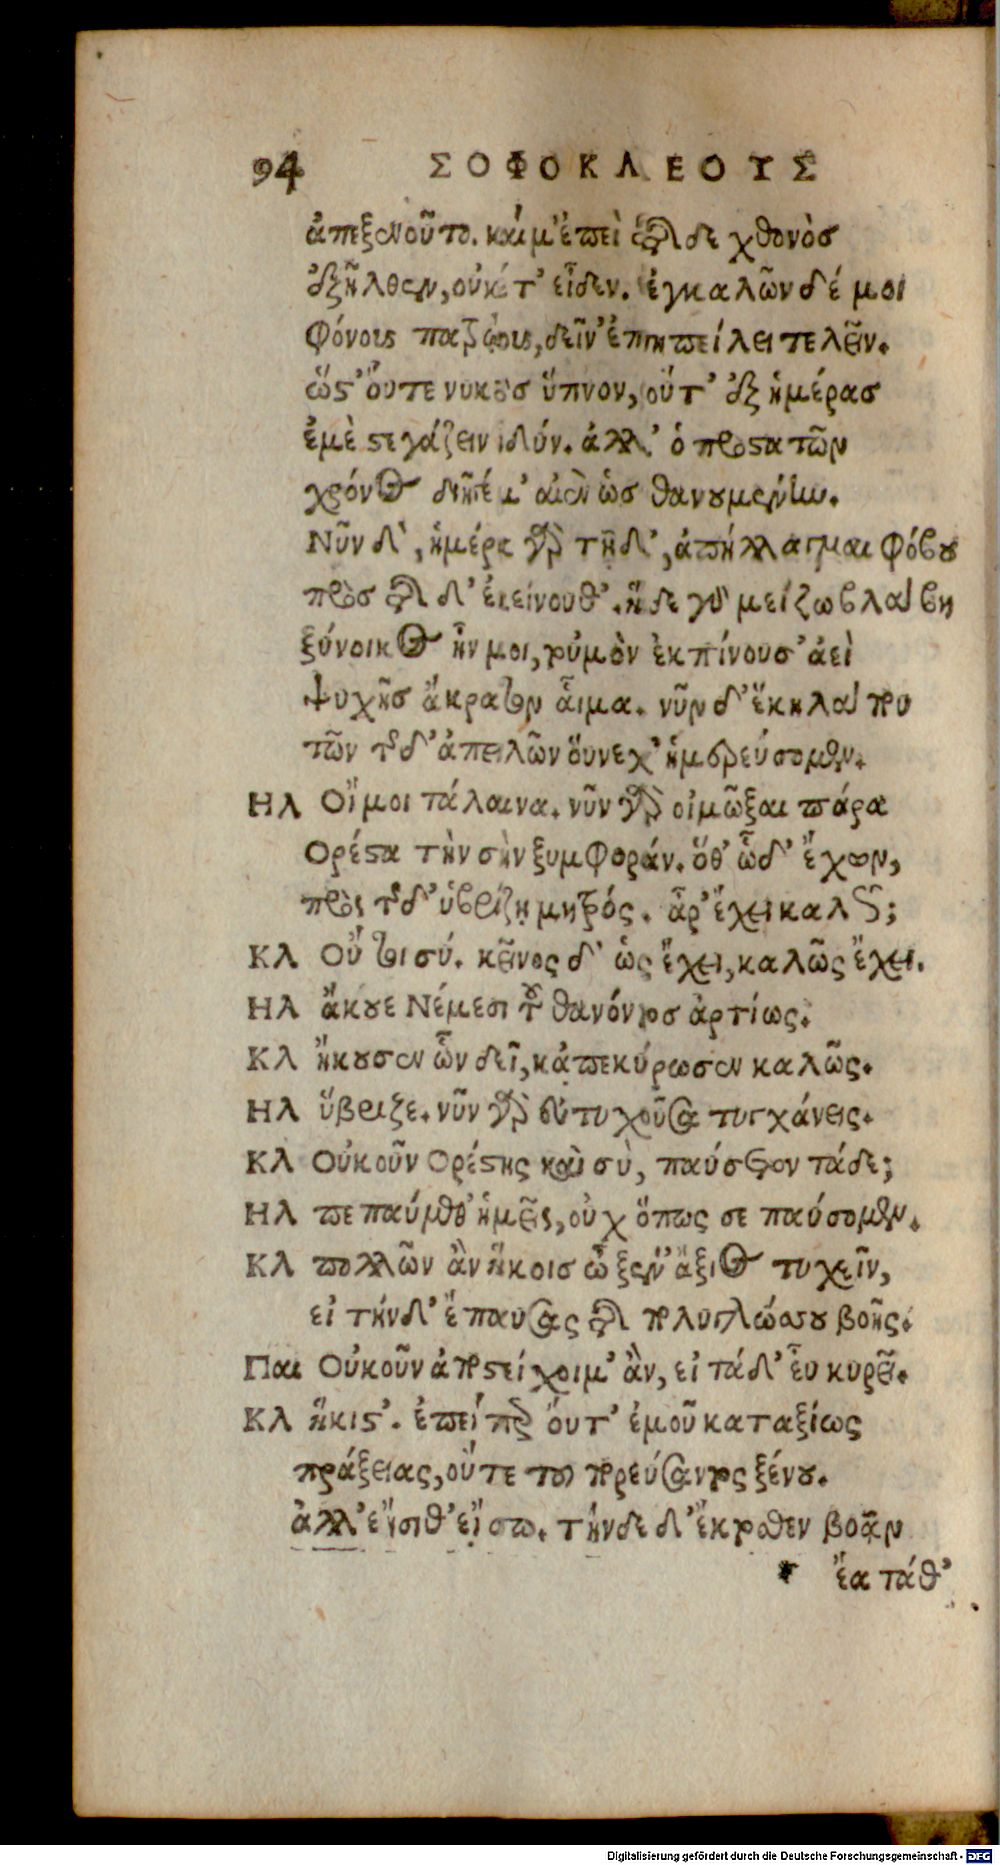 94 ΣΟΦΟΚΛΕΟΥΣ
ἀπεξενοῦτο. καί μ' ἐπεὶ τῆσδε χθονὸσ
ἐξῆλθεν, οὐκέτ' εἶδεν. ἐγκαλῶν δέ μοι
φόνους πατρῴους, δεῖν' ἐπηπείλει τελεῖν.
ὥστ' οὔτε νυκτὸσ ὕπνον, οὔτ' ἐξ ἡμέρασ
ἐμὲ στεγάζειν ἡδύν. ἀλλ' ὁ προστατῶν
χρόνος διῆγέ μ' αἰὲν ὡσ θανουμένην.
Νῦν δ', ἡμέρᾳ γὰρ τῇδ', ἀπήλλαγμαι φόβου
πρὸσ τῆσδ' ἐκείνουθ'. ἥδε γὰρ μείζω βλάβη
ξύνοικος ἦν μοι, τοὐμὸν ἐκπίνουσ' ἀεὶ
ψυχῆσ ἄκρατον αἷμα. νῦν δ' ἕκηλά που
τῶν τῆσδ' ἀπειλῶν οὕνεχ' ἡμερεύσομεν.
Ηλ Οἴμοι τάλαινα. νῦν γὰρ οἰμῶξαι πάρα
Ορέστα τὴν σὴν ξυμφοράν. ὅθ' ὧδ' ἔχων,
πρὸς τῆσδ' ὑβρίζῃ μητρός. ἆρ' ἔχει καλῶς;
Κλ Οὔ τοι σύ. κεῖνος δ' ὡς ἔχει, καλῶς ἔχει.
Ηλ ἄκουε Νέμεσι τοῦ θανόντοσ ἀρτίως.
Κλ ἤκουσεν ὧν δεῖ, κἀπεκύρωσεν καλῶς.
Ηλ ὕβριζε. νῦν γὰρ εὐτυχοῦσα τυγχάνεις.
Κλ Οὐκοῦν Ορέστης καὶ σὺ, παύσετον τάδε;
Ηλ πεπαύμεθ' ἡμεῖς, οὐχ ὅπως σε παύσομεν.
Κλ πολλῶν ἂν ἥκοισ ὦ ξέν' ἄξιος τυχεῖν,
εἰ τήνδ' ἔπαυσας τῆς πολυγλώσσου βοῆς.
Παι Οὐκοῦν ἀποστείχοιμ' ἂν, εἰ τάδ' εὖ κυρεῖ.
Κλ ἥκιστ'. ἐπείπερ οὔτ' ἐμοῦ καταξίως
πράξειας, οὔτε τοῦ πορεύσαντος ξένου.
ἀλλ' εἴσιθ' εἴσω. τήνδε δ' ἔκτοθεν βοᾷν
ἔα τάθ'
Digitalisierung gefördert durch die Deutsche Forschungsgemeinschaft - DFG